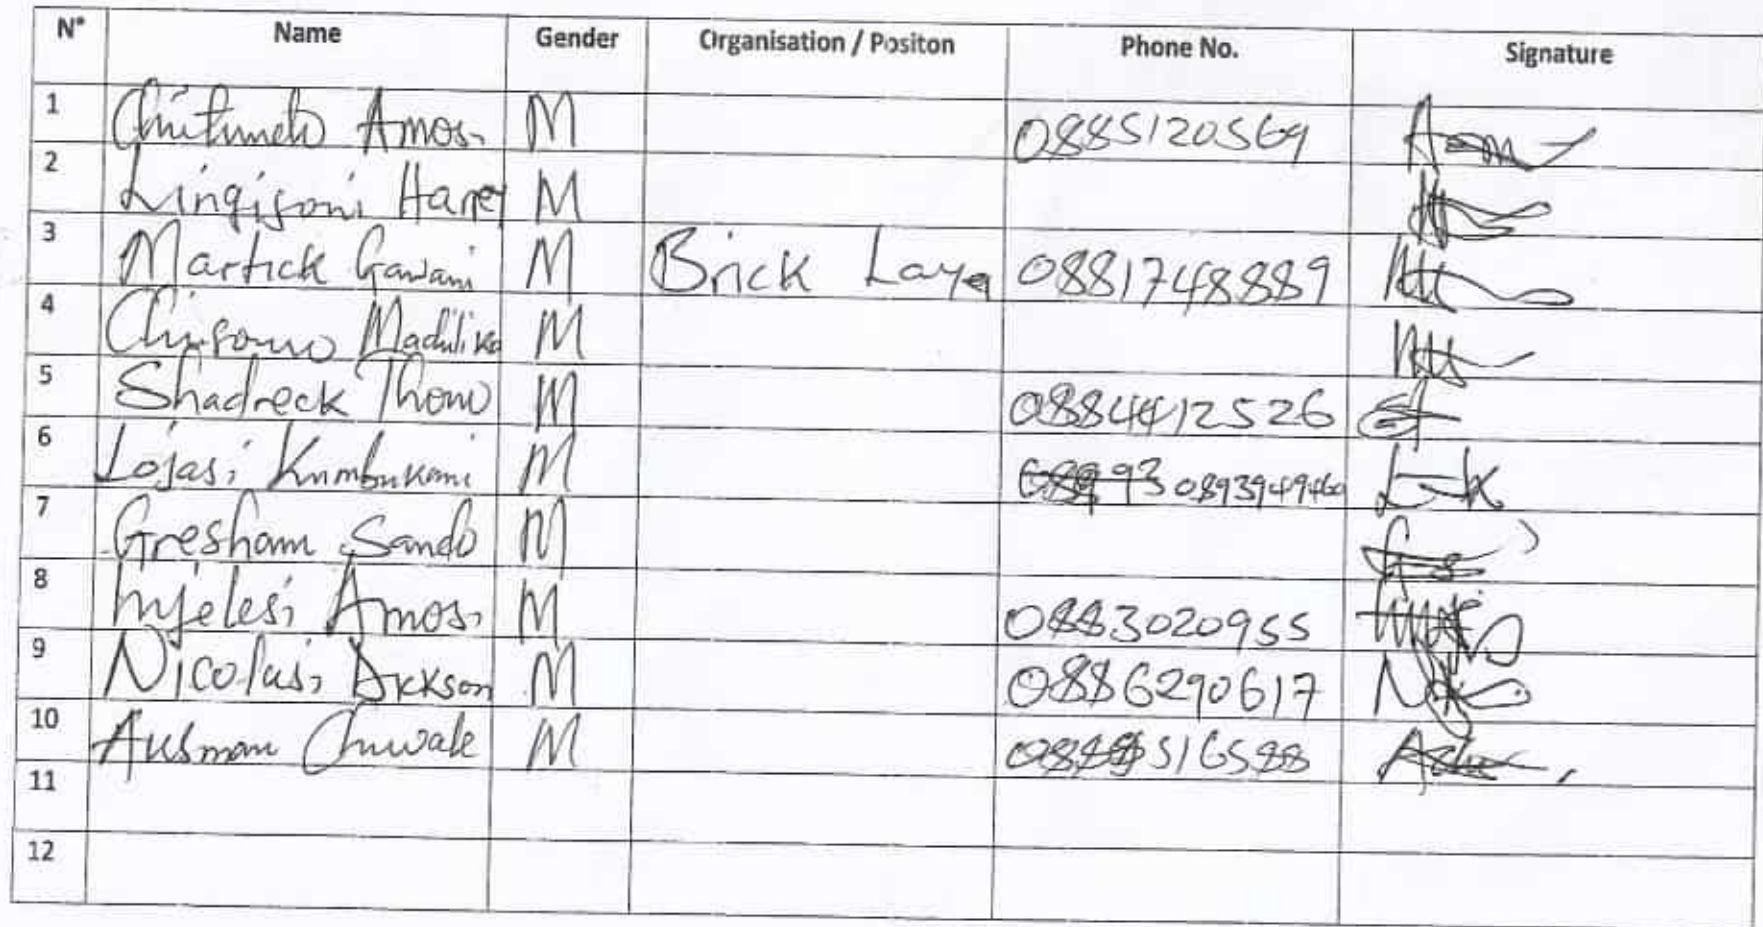 N° Name Gender Organisation / Positon Phone No. Signature
1 Amos M 0885120569
2 Lingisoni M
3 Martick Gawani M Brick Laye 0881748889
4 Chisomo Maduliko M
5 Shadreck Thomo M 0884412526
6 Lojasi Kumbukani M 0893949460
7 Gresham Sando M
8 Injelesi Amosi M 0883020955
9 Nicolasi Dickson M 0886290617
10 Ausman Chiwale M
11
12